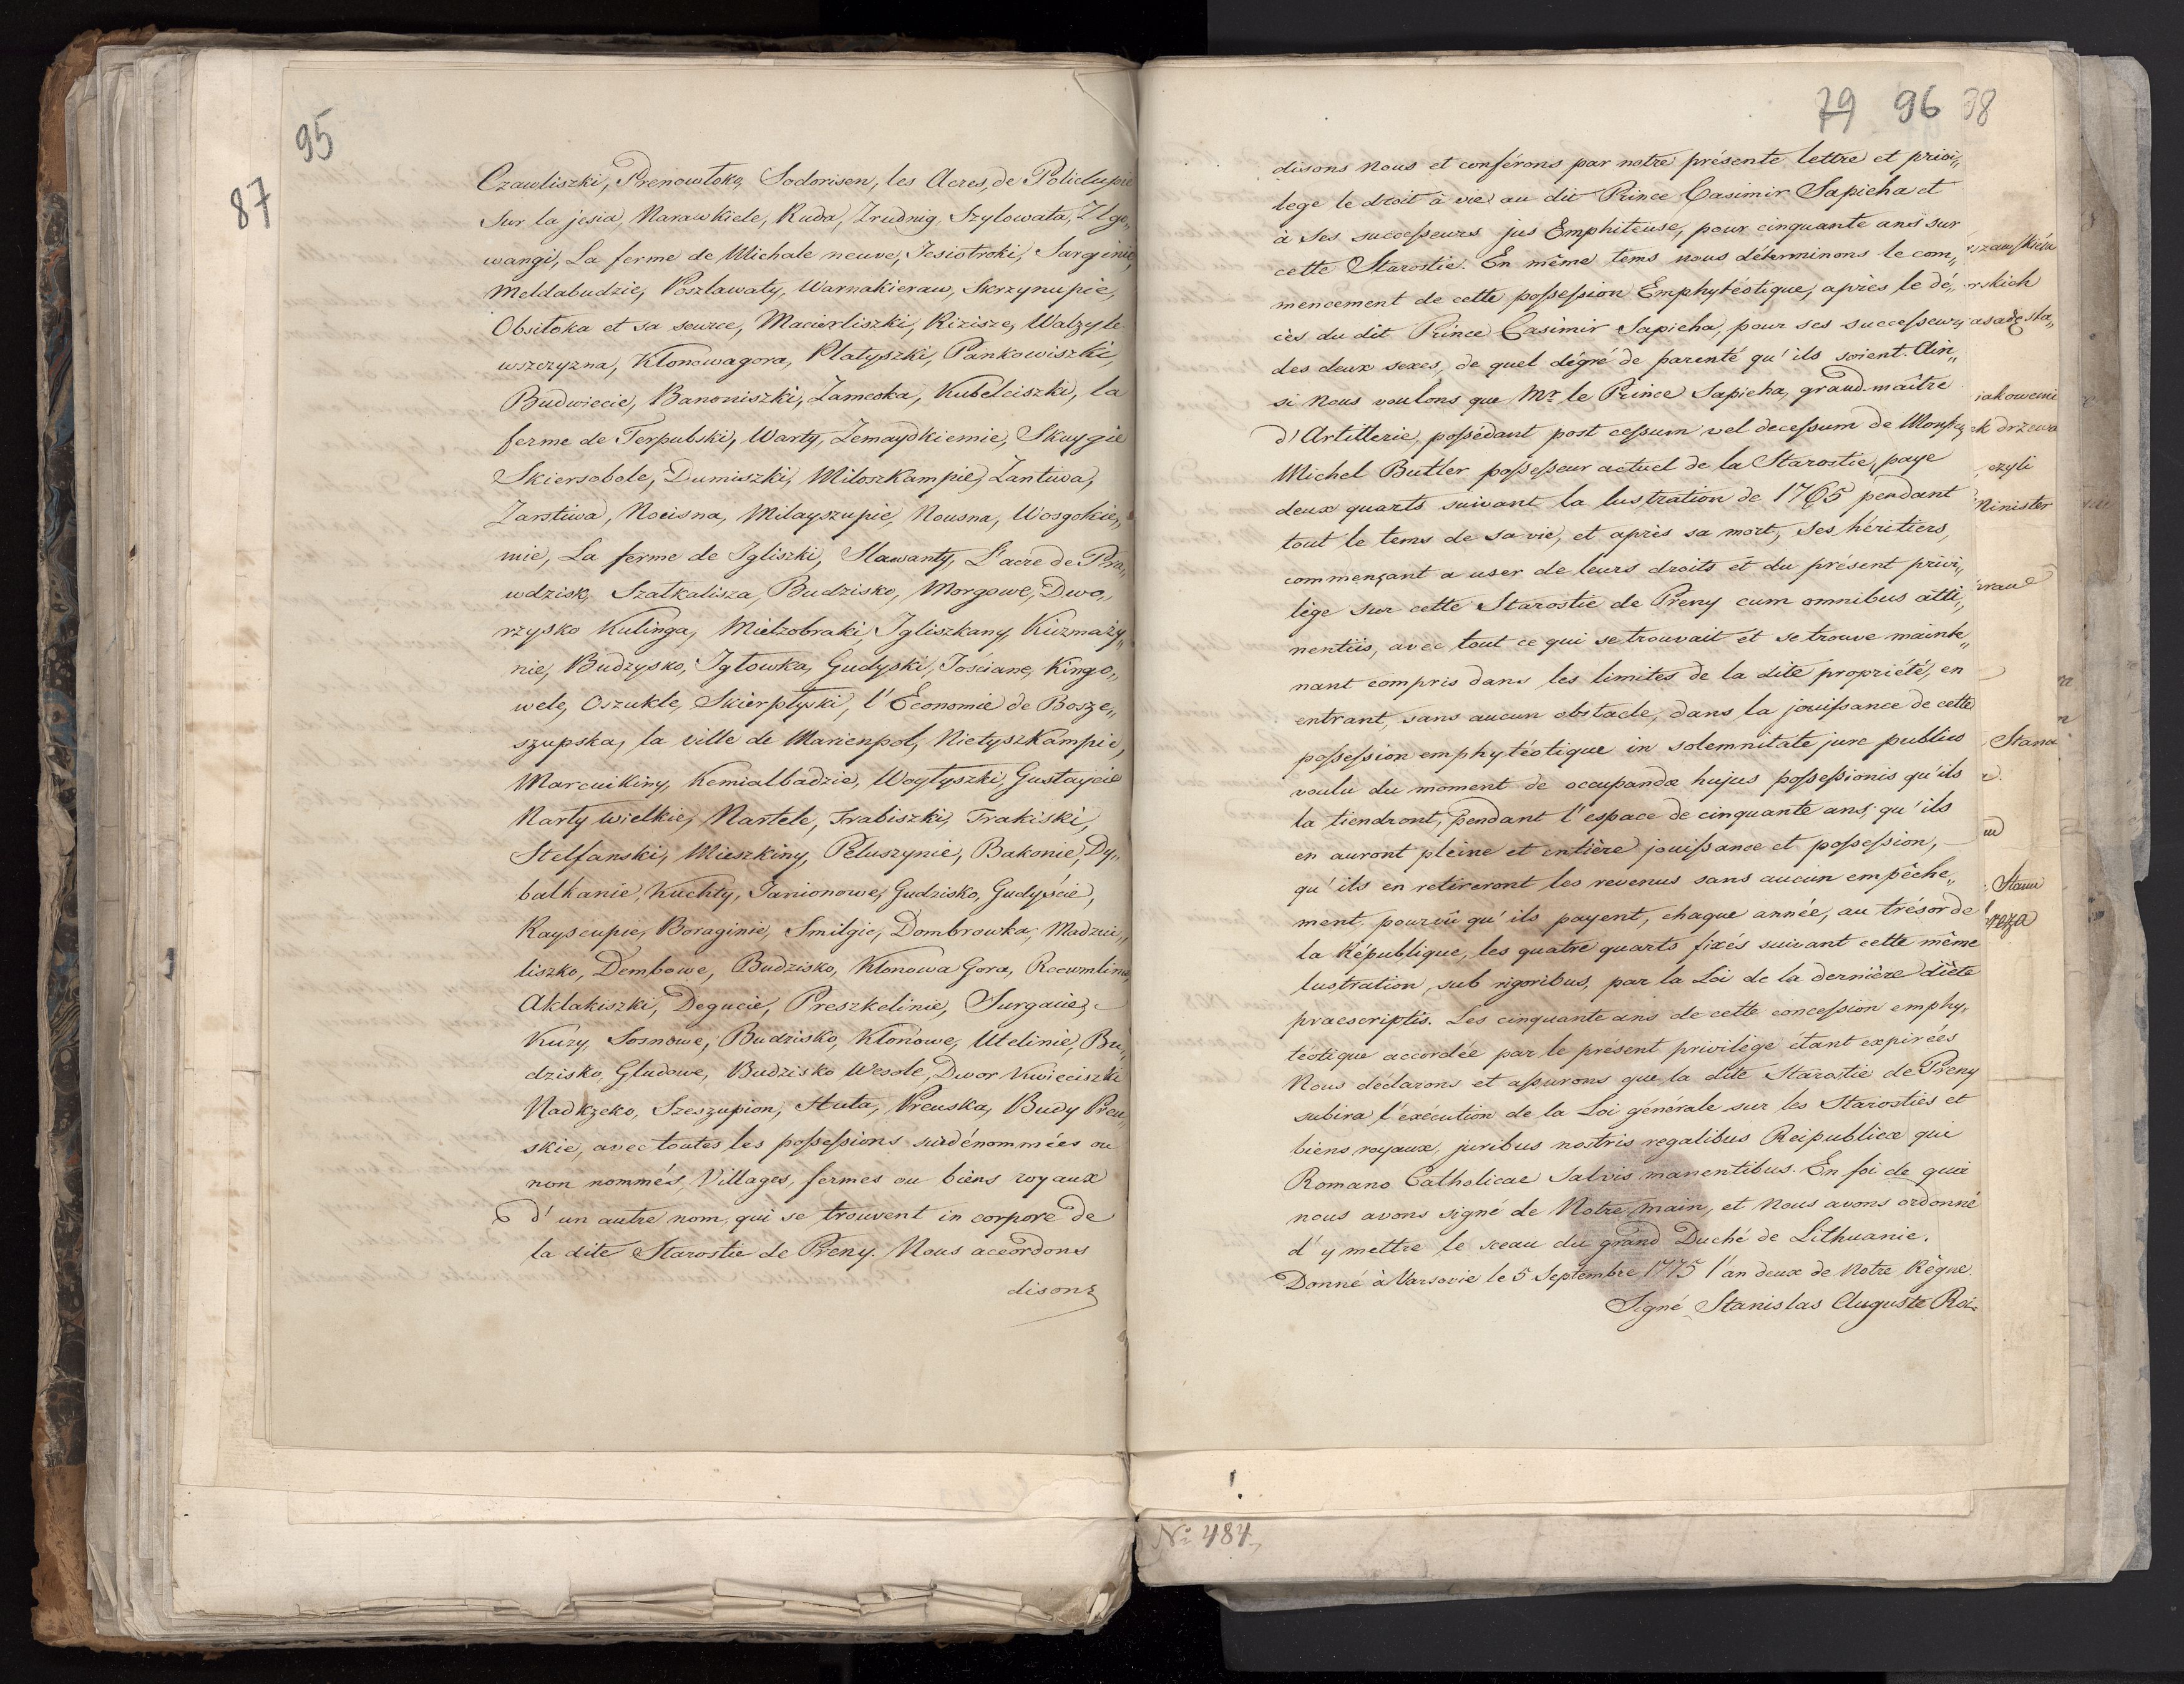 95
87
Czawliszki, Prenowloka, Sodorisen, les Acres, de Policlupie
Sur la jesia, Narawkiele, Ruda, Zrudnig, Szylowata, Zlgo„
wangi, La ferme de Michale neuve, Jesiotroki, Sarginie,
Meldabudzie, Poszlawaty, Warnakieraw, Skrzynupie,
Obsitoka et sa source, Macierliszki, Rizisze, Walzyle
wszczyzna, Klonowagora, Platyszki, Pankowiszki,
Budwiecie, Banoniszki, Zameoka, Kubelciszki, la
ferme de Terpubski, Warty, Zemaydkiemie, Skuygie
Skiersobole, Dumiszki, Miloszkampie, Zantiwa,
Zarstiwa, Nocisna, Milayszupie, Nousna, Wosgokie„
mie, La ferme de Igliszki, Slawanty, L'acre de Pra„
wdzisk, Szatkalisza, Budzisko, Morgowe, Dwo„
rzysko Kulinga, Mielzobraki, Igliszkany, Kuzmazy„
nie, Budzysko, Iglowka, Gudyski, Jościane, Kingo„
wele, Oszukle, Skierptyski, l'Economie de Bosze„
szupska, la ville de Marienpol, Nietyszkampie,
Marcuikiny, Kemialbadzie, Woytyszki, Gustaycie
Narty wielkie, Nartele, Trabiszki, Trakiski,
Stelfanski, Mieszkiny, Peluszynie, Bakonie, Dy„
balkanie, Kuchty, Janionowe, Gudzisko, Gudyście,
Rayscupie, Boraginie, Smilgie, Dombrowka, Madzie„
liszko, Dembowe, Budzisko, Klonowa Gora, Rocumlinie,
Aklakiszki, Degucie, Preszkelinie, Surgacie,
Kuzy, Sosnowe, Budzisko, Klonowe, Utelinie, Bu„
dzisko, Gludowe, Budzisko Wesole, Dwor Kwieciszki
Nadkzeko, Szeszupion, Huta, Preuska, Budy Preu„
skie, avec toutes les possessions susdénommées ou
non nommés, Villages, fermes ou biens royaux
d'un autre nom, qui se trouvent in corpore de
la dite Starostie de Preny. Nous accordons
disons
79 96 38
disons Nous et conférons par notre présente lettre et privi„
lege le droit à vie au dit Prince Casimir Sapieha et
à Ses successeurs jus Emphiteuse, pour cinquante ans sur
cette Starostie. En même tems nous déterminons le com„
mencement de cette possession Emphytéotique, après le dé„
cès du dit Prince Casimir Sapieha, pour ses successeurs
des deux sexes, de quel dégré de parenté qu'ils soient. Ain„
si Nous voulons que Mr. le Prince Sapieha, grand-maître
d'Artillerie, possédant post cessum vel decessum de Monsr
Michel Butler possesseur actuel de la Starostie, paye
deux quarts suivant la lustration de 1765 pendant
tout le tems de sa vie, et après sa mort, Ses héritiers,
commençant a user de leurs droits et du présent privi„
lège sur cette Starostie de Preny cum omnibus atti„
nentiis, avec tout ce qui se trouvait et se trouve mainte„
nant compris dans les limites de la dite propriété, en
entrant, sans aucun obstacle, dans la jouissance de cette
possession emphytéotique in solemnitate jure publico
voulu du moment de occupandæ hujus possessionis qu'ils
la tiendront, pendant l'espace de cinquante ans, qu'ils
en auront pleine et entière jouissance et possession,
qu'ils en retireront les revenus sans aucun empêche„
ment, pourvû qu'ils payent, chaque année, au trésor de
la République, les quatre quarts fixés suivant cette même
lustration, sub rigoribus, par la Loi de la dernière diète
praescriptis. Les cinquante ans de cette concession emphy„
téotique accordée par le présent privilége étant expirées
Nous déclarons et assurons que la dite Starostie de Preny
subira l'exécution de la Loi générale sur les Starosties et
biens royaux, juribus nostris regalibus Reipublicæ qui
Romano Catholicae Salvis manentibus. En foi de quoi
nous avons signé de Notre main, et Nous avons ordonné
d'y mettre le sceau du grand Duché de Lithuanie.
Donné à Varsovie le 5 Septembre 1775 l'an deux de Notre Règne.
Signé Stanislas Auguste Roi.
rskich
iakowemi
k drzewa
czyli
Minister
Stana
No 484